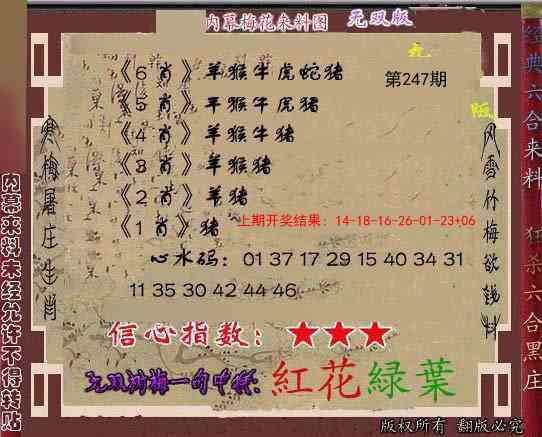 内幕梅花来料图 无双版
《6肖》羊猴牛虎蛇猪
第247期
《5肖》羊猴牛虎猪
《4肖》羊猴牛猪
《3肖》羊猴猪
《2肖》羊猪
上期开奖结果：14-18-16-26-01-23+06
《1肖》猪
心水码：01 37 17 29 15 40 34 31
11 35 30 42 44 46
信心指数：★★★
无双刘梅一句中特：紅花緑葉
版权所有 翻版必究
寒梅屠庄生肖
风雪竹梅欲钱料
内幕来料未经允许不得转贴
经典六合来料 狂杀六合黑庄